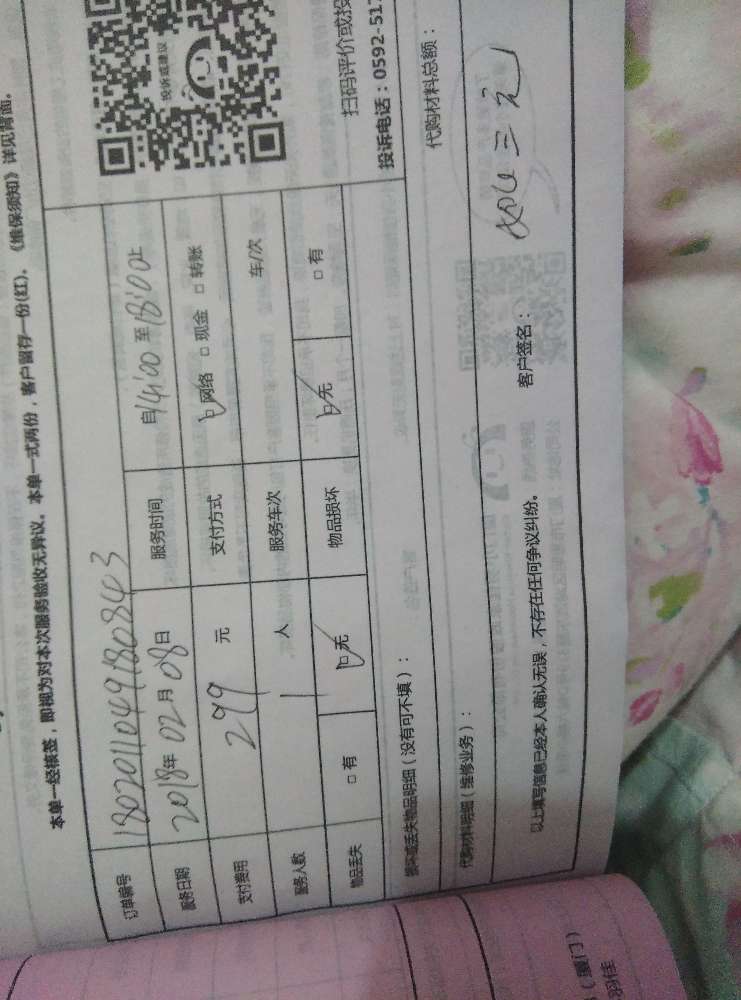 本单一经核签，即视为对本次服务验收无异议。本单一式两份，客户留存一份(红)。《维保须知》详见背面。
订单编号 180201104918080843
服务日期 2018年 02月 08日 服务时间 自14:00 至 18:00止
支付费用 299 元 支付方式 网络 □ 现金 □ 转账
服务人数 1 人 服务车次 车/次
物品丢失 □ 有 无 物品损坏 无 □ 有
投诉或建议
扫码评价或投
投诉电话：0592-517
损坏或丢失物品明细（没有可不填）：
代购材料明细（维修业务）： 代购材料总额：
以上填写信息已经本人确认无误，不存在任何争议纠纷。 客户签名：
（厦门）